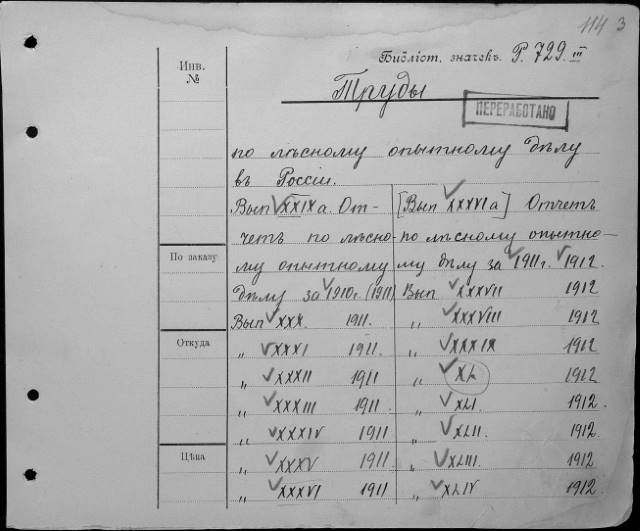 114 3
Инв.
№
Библіот. значекъ. Р. 729. III
Труды
ПЕРЕРАБОТАНО
по лѣсному опытному дѣлу
въ Россіи.
Вып XXIXа. От-
четъ по лѣсно-
му опытному
дѣлу за 1910г. (1911)
Вып XXX. 1911.
„ XXXI 1911.
„ XXXII 1911
„ XXXIII 1911
„ XXXIV 1911
„ XXXV 1911.
„ XXXVI 1911
[Вып XXXVIа] Отчетъ
по лѣсному опытно-
му дѣлу за 1911г. 1912.
Вып XXXVII 1912
„ XXXVIII 1912
„ XXXIX 1912
„ XL 1912
„ XLI. 1912.
„ XLII. 1912.
„ XLIII. 1912.
„ XLIV 1912
По заказу
Откуда
Цѣна